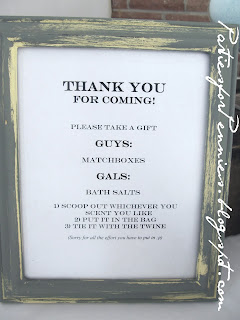 THANK YOU
FOR COMING!
PLEASE TAKE A GIFT
GUYS:
MATCHBOXES
GALS:
BATH SALTS
1) SCOOP OUT WHICHEVER YOU
SCENT YOU LIKE
2) PUT IT IN THE BAG
3) TIE IT WITH THE TWINE
(Sorry for all the effort you have to put in :))
Partiesforpennies.blogspot.com